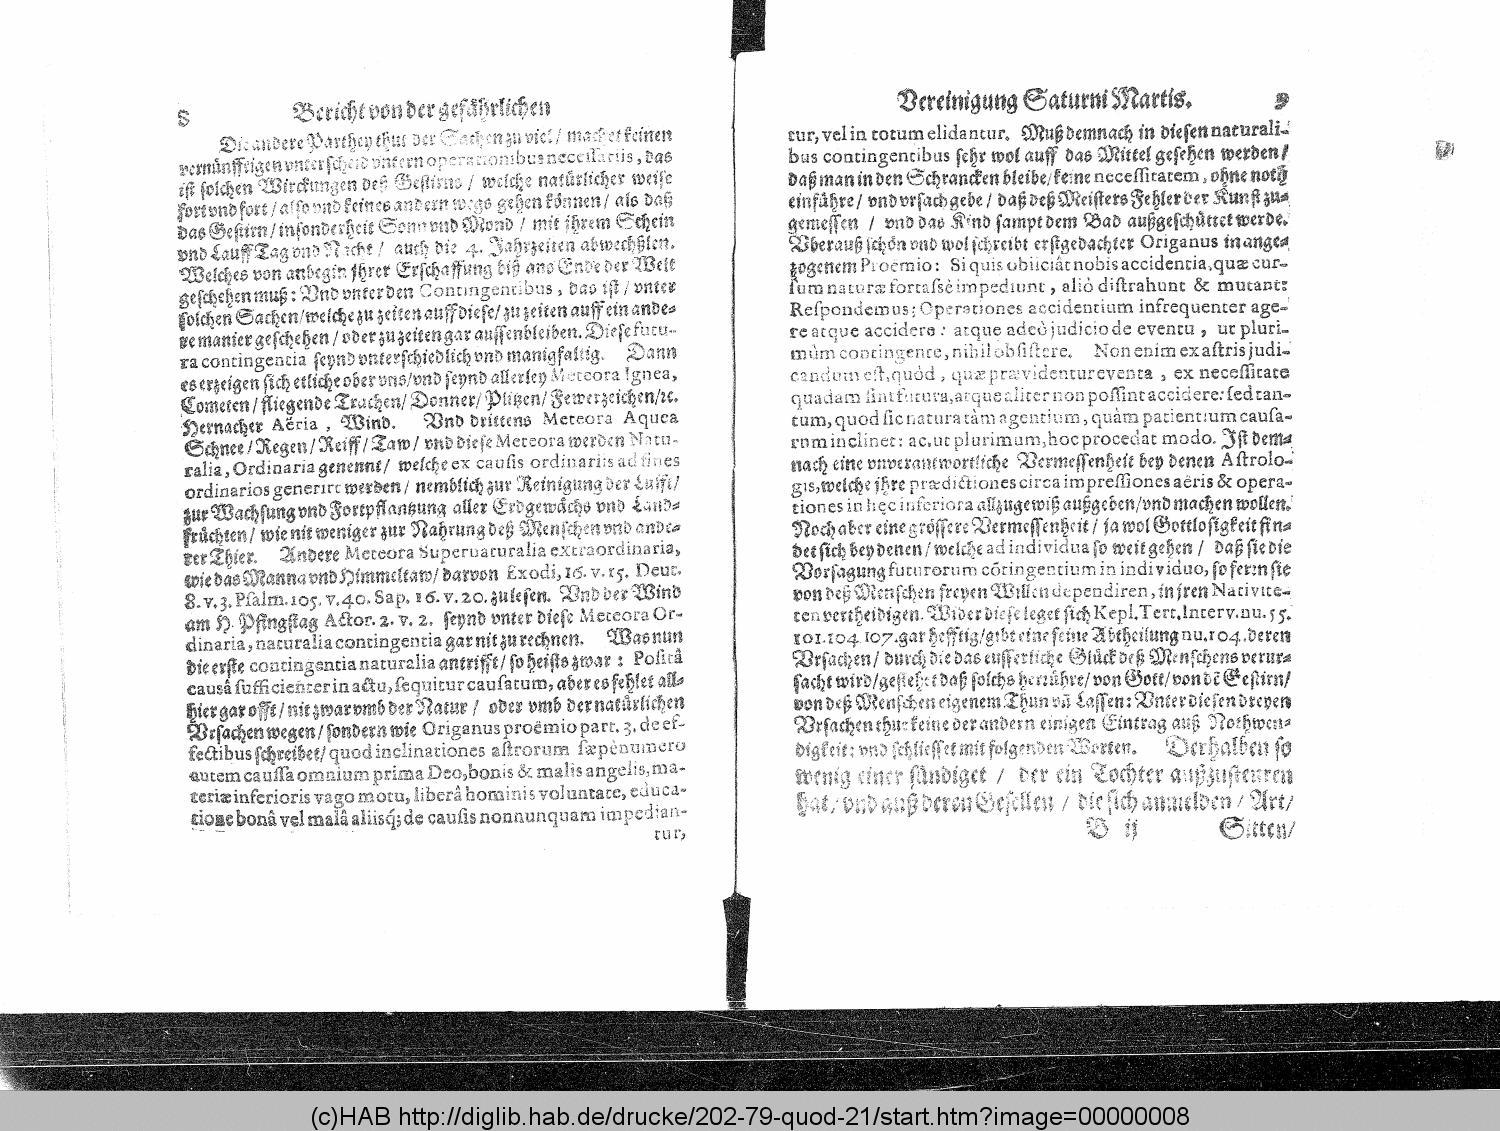 8 Bericht von der gefährlichen
Die andere Parthey thut der Sachen zu viel / machet keinen
vernünfftigen vnterscheid vntern operationibus necessariis, das
ist solchen Wirckungen deß Gestirns / welche natürlicher weise
fort vnd fort / also vnd keines andern wegs gehen können / als daß
das Gestirn / insonderheit Sonn vnd Mond / mit jhrem Schein
vnd Lauff Tag vnd Nacht / auch die 4. Jahrzeiten abwechßlen.
Welches von anbegin jhrer Erschaffung biß ans Ende der Welt
geschehen muß: Vnd vnter den Contingentibus, das ist / vnter
solchen Sachen / welche zu zeiten auff diese / zu zeiten auff ein ande-
re manier geschehen / oder zu zeiten gar aussenbleiben. Diese futu-
ra contingentia seynd vnterschiedlich vnd manigfaltig. Dann
es erzeigen sich etliche ober vns / vnd seynd allerley Meteora Ignea,
Cometen / fliegende Trachen / Donner / Plitzen / Fewerzeichen / ꝛc.
Hernacher Aëria, Wind. Vnd drittens Meteora Aquea
Schnee / Regen / Reiff / Taw / vnd diese Meteora werden Natu-
ralia, Ordinaria genennt / welche ex causis ordinariis ad fines
ordinarios generirt werden / nemblich zur Reinigung der Lufft /
zur Wachsung vnd Fortpflantzung aller Erdgewächs vnd Land-
früchten / wie nit weniger zur Nahrung deß Menschen vnd ande-
rer Thier. Andere Meteora Supernaturalia extraordinaria,
wie das Manna vnd Himmeltaw / darvon Exodi, 16. v. 15. Deut.
8. v. 3. Psalm. 105. v. 40. Sap. 16. v. 20. zulesen. Vnd der Wind
am H. Pfingstag Actor. 2. v. 2. seynd vnter diese Meteora Or-
dinaria, naturalia contingentia gar nit zu rechnen. Was nun
die erste contingentia naturalia antrifft / so heists zwar: Positâ
causâ sufficienter in actu, sequitur causatum, aber es fehlet all-
hier gar offt / nit zwar vmb der Natur / oder vmb der natürlichen
Vrsachen wegen / sondern wie Origanus proëmio part. 3. de ef-
fectibus schreibet / quod inclinationes astrorum sæpè numero
autem caussa omnium prima Deo, bonis & malis angelis, ma-
teriæ inferioris vago motu, liberâ hominis voluntate, educa-
tione bonâ vel malâ aliisq; de causis nonnunquam impedian-
tur,
Vereinigung Saturni Martis. 9
tur, vel in totum elidantur. Muß demnach in diesen naturali-
bus contingentibus sehr wol auff das Mittel gesehen werden /
daß man in den Schrancken bleibe / keine necessitatem, ohne noth
einführe / vnd vrsach gebe / daß deß Meisters Fehler der Kunst zu-
gemessen / vnd das Kind sampt dem Bad außgeschüttet werde.
Vberauß schön vnd wol schreibt erstgedachter Origanus in ange-
zogenem Proëmio: Si quis obiiciat nobis accidentia, quæ cur-
sum naturæ fortassè impediunt, aliò distrahunt & mutant:
Respondemus: Operationes accidentium infrequenter age-
re atque accidere: atque adeò judicio de eventu, ut pluri-
mùm contingente, nihil obsistere. Non enim ex astris judi-
candum est, quòd, quæ prævidentur eventa, ex necessitate
quadam sint futura, atque aliter non possint accidere: sed tan-
tum, quod sic natura tàm agentium, quàm patientium causa-
rum inclinet: ac, ut plurimum, hoc procedat modo. Ist dem-
nach eine vnverantwortliche Vermessenheit bey denen Astrolo-
gis, welche jhre prædictiones circa impressiones aëris & opera-
tiones in hęc inferiora allzugewiß außgeben / vnd machen wollen.
Noch aber eine grössere Vermessenheit / ja wol Gottlosigkeit fin-
det sich bey denen / welche ad individua so weit gehen / daß sie die
Vorsagung futurorum cōtingentium in individuo, so fern sie
von deß Menschen freyen Willen dependiren, in jren Nativite-
ten vertheidigen. Wider diese leget sich Kepl. Tert. Interv. nu. 55.
101. 104. 107. gar hefftig / gibt eine seine Abtheilung nu. 104. deren
Vrsachen / durch die das eusserliche Glück deß Menschens verur-
sacht wird / gestehet daß solchs herrühre / von Gott / von dē Gestirn /
von deß Menschen eigenem Thun vn̄ Lassen: Vnter diesen dreyen
Vrsachen thue keine der andern einigen Eintrag auß Nothwen-
digkeit: vnd schliesset mit folgenden Worten. Derhalben so
wenig einer sündiget / der ein Tochter außzustewren
hat / vnd auß deren Gesellen / die sich anmelden / Art /
B ij Sitten /
(c)HAB http://diglib.hab.de/drucke/202-79-quod-21/start.htm?image=00000008